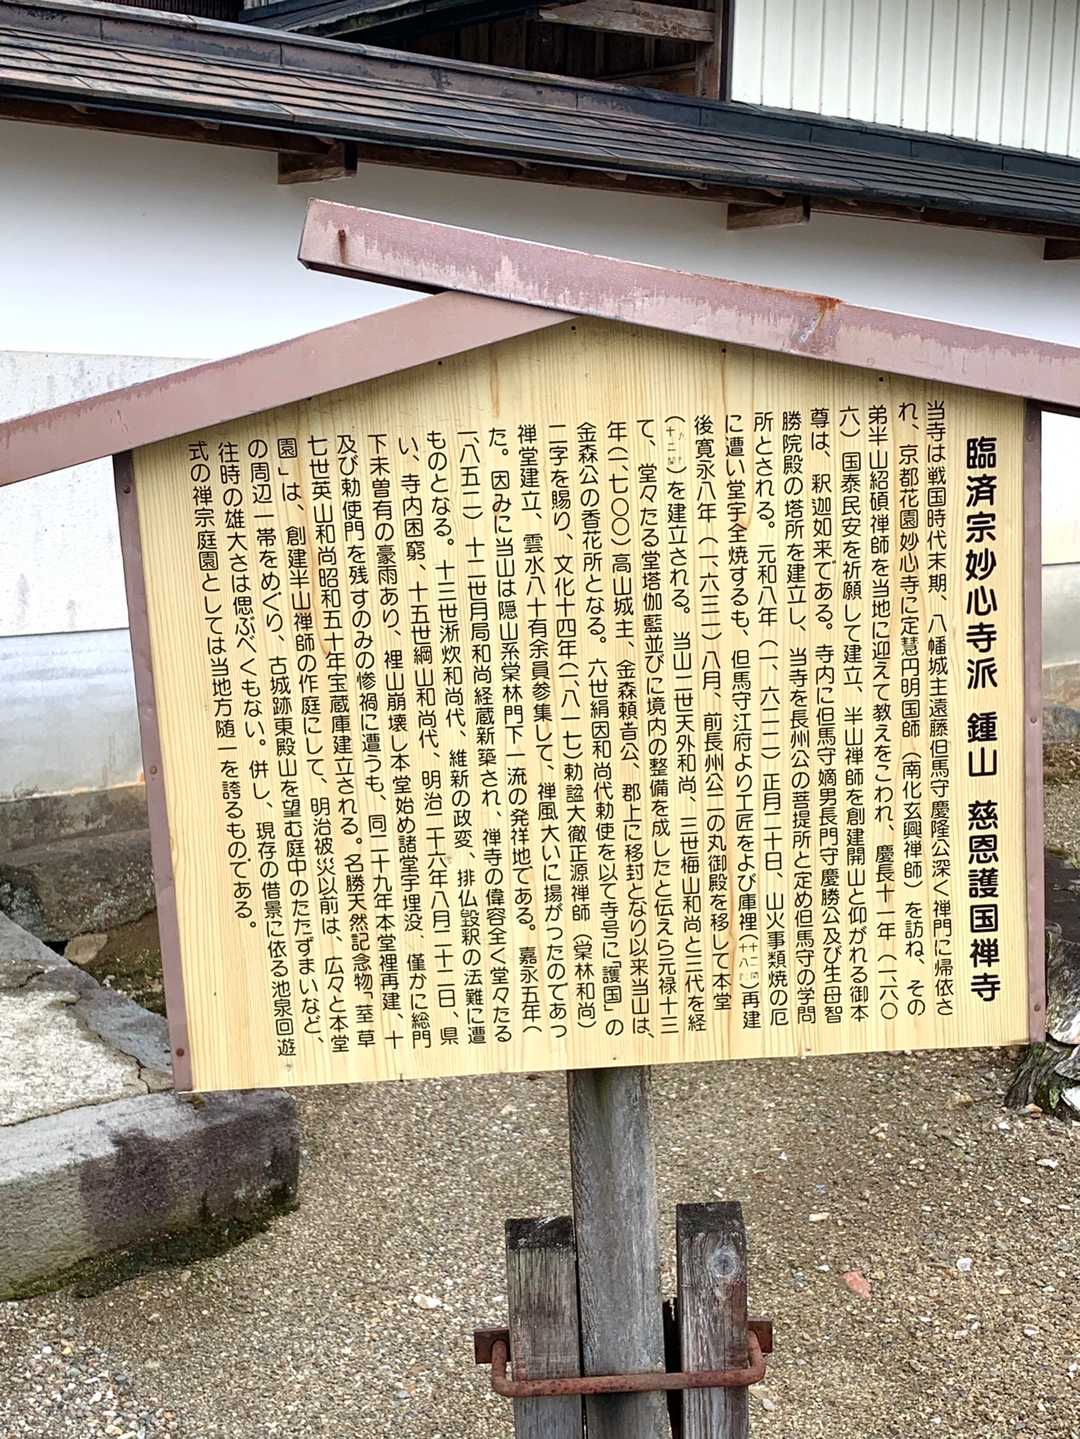 臨済宗妙心寺派 鍾山 慈恩護国禅寺
当寺は戦国時代末期、八幡城主遠藤但馬守慶隆公深く禅門に帰依さ
れ、京都花園妙心寺に定慧円明国師（南化玄興禅師）を訪ね、その
弟半山紹碩禅師を当地に迎えて教えをこわれ、慶長十一年（一、六〇
六）国泰民安を祈願して建立、半山禅師を創建開山と仰がれる御本
尊は、釈迦如来である。寺内に但馬守嫡男長門守慶勝公及び生母智
勝院殿の塔所を建立し、当寺を長州公の菩提所と定め但馬守の学問
所とされる。元和八年（一、六二二）正月二十日、山火事類焼の厄
に遭い堂宇全焼するも、但馬守江府より工匠をよび庫裡（十八間）再建
後寛永八年（一、六三一）八月、前長州公二の丸御殿を移して本堂
（十二間）を建立される。当山二世天外和尚、三世梅山和尚と三代を経
て、堂々たる堂塔伽藍並びに境内の整備を成したと伝えら元禄十三
年（一、七〇〇）高山城主、金森頼旹公、郡上に移封となり以来当山は、
金森公の香花所となる。六世絹因和尚代勅使を以て寺号に「護国」の
二字を賜り、文化十四年（一、八一七）勅諡大徹正源禅師（棠林和尚）
禅堂建立、雲水八十有余員参集して、禅風大いに揚がったのであっ
た。因みに当山は隠山系棠林門下一流の発祥地である。嘉永五年（
一、八五二）十二世月局和尚経蔵新築され、禅寺の偉容全く堂々たる
ものとなる。十三世淅炊和尚代、維新の政変、排仏毀釈の法難に遭
い、寺内困窮、十五世綱山和尚代、明治二十六年八月二十二日、県
下未曽有の豪雨あり、裡山崩壊し本堂始め諸堂宇埋没、僅かに総門
及び勅使門を残すのみの惨禍に遭うも、同二十九年本堂裡再建、十
七世英山和尚昭和五十年宝蔵庫建立される。名勝天然記念物「荎草
園」は、創建半山禅師の作庭にして、明治被災以前は、広々と本堂
の周辺一帯をめぐり、古城跡東殿山を望む庭中のたたずまいなど、
往時の雄大さは偲ぶべくもない。併し、現存の借景に依る池泉回遊
式の禅宗庭園としては当地方随一を誇るものである。